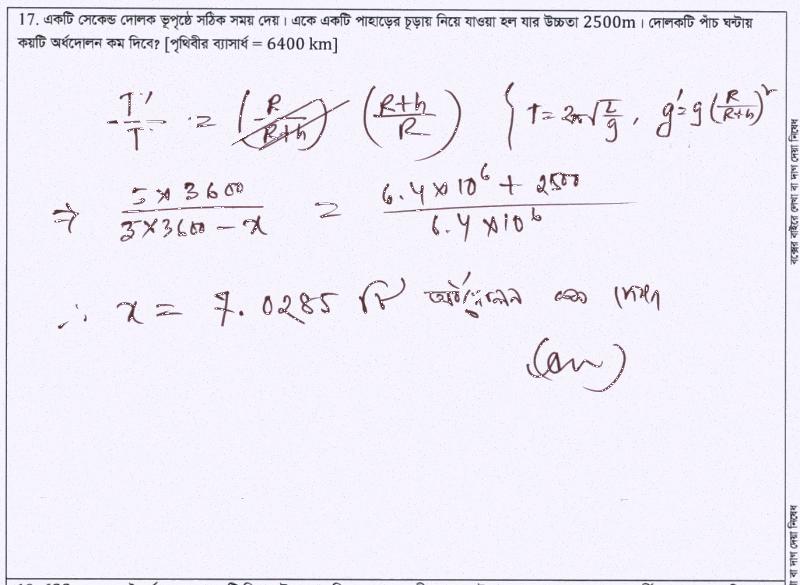 17. একটি সেকেন্ড দোলক ভূপৃষ্ঠে সঠিক সময় দেয়। একে একটি পাহাড়ের চূড়ায় নিয়ে যাওয়া হল যার উচ্চতা 2500m। দোলকটি পাঁচ ঘন্টায়
কয়টি অর্ধদোলন কম দিবে? [পৃথিবীর ব্যাসার্ধ = 6400 km]
T'/T = (R/R+h) (R+h/R) { T = 2π√L/g, g' = g(R/R+h)²
⇒ 5×3600/5×3600 - x = 6.4×10⁶ + 2500/6.4×10⁶
∴ x = 7.0285 টি অর্ধদোলন কম দেবে
(Ans)
বক্সের বাইরে লেখা বা দাগ দেয়া নিষেধ
বা দাগ দেয়া নিষেধ